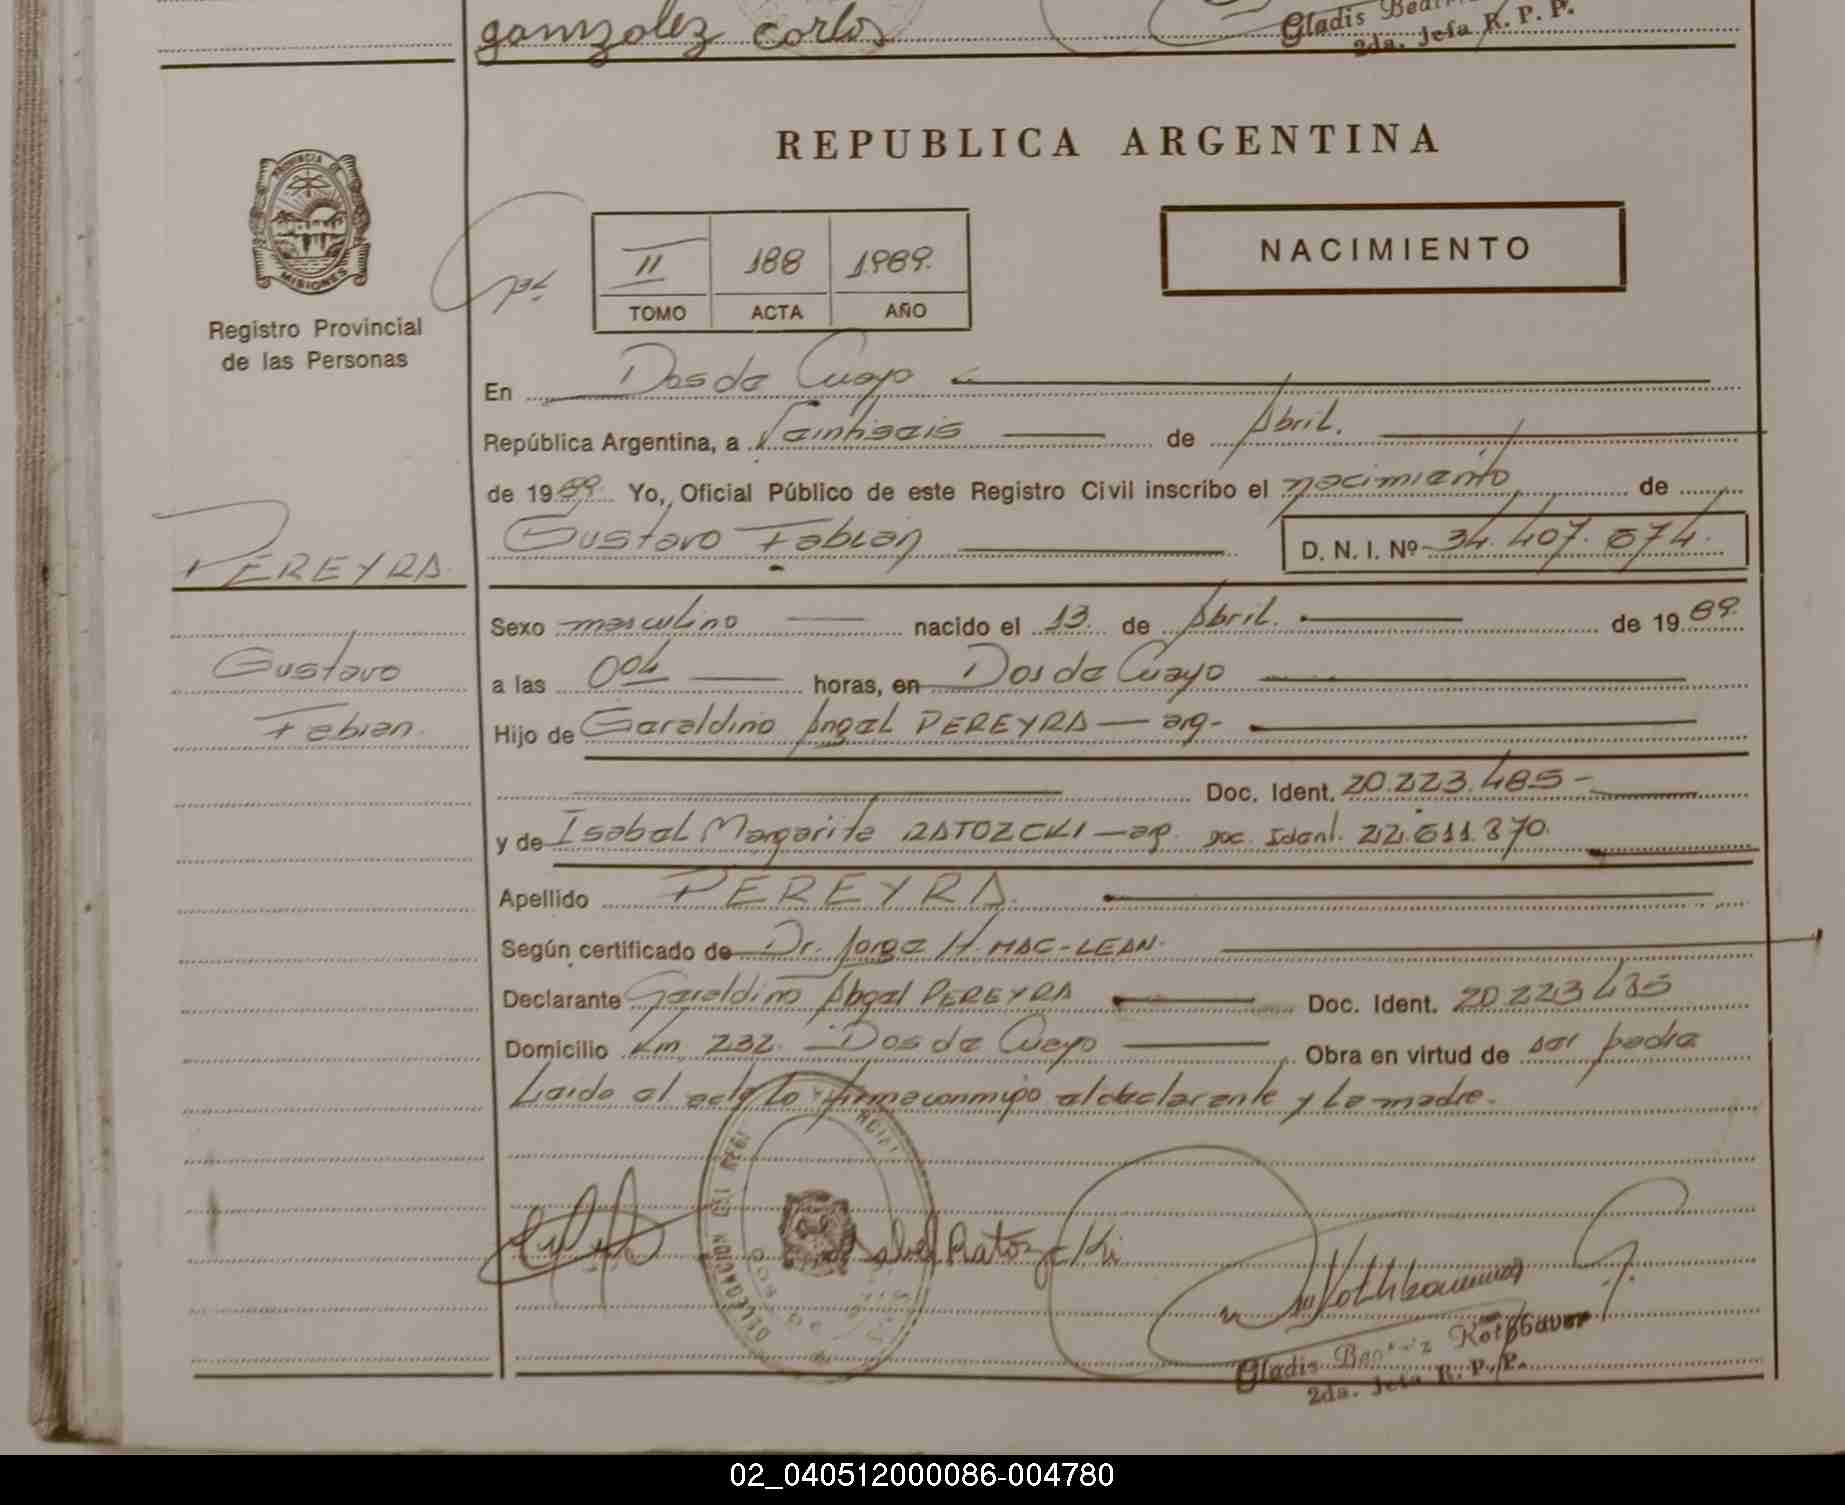 gonzolez carlos
Gladis
2da. Jefa R. P. P.
PROVINCIA DE
MISIONES
Registro Provincial
de las Personas
REPUBLICA ARGENTINA
II 188 1989.
TOMO ACTA AÑO
NACIMIENTO
En Dos de Cuayo
República Argentina, a Veintiseis de Abril.
de 1989 Yo, Oficial Público de este Registro Civil inscribo el nacimiento de
PEREYRA
Gustavo Fabian D. N. I. Nº 34.407.674.
Sexo masculino nacido el 13 de Abril. de 1989.
Gustavo
a las 004 horas, en Dos de Cuayo
Fabian.
Hijo de Geraldino Angel PEREYRA — arg-
Doc. Ident. 20.223.485-
y de Isabel Margarita RATOZCKI — arg. Doc. Ident. 22.611.370.
Apellido PEREYRA.
Según certificado de Dr. Jorge H. MAC-LEAN.
Declarante Geraldino Angel PEREYRA Doc. Ident. 20.223.485
Domicilio Km. 232. Dos de Cuayo Obra en virtud de ser padre
Leido el acta lo firma conmigo el declarante y la madre.
Isabel Ratozcki
DELEGACION
Gladis Beatriz Rothbauer
2da. Jefa R. P. P.
02_040512000086-004780